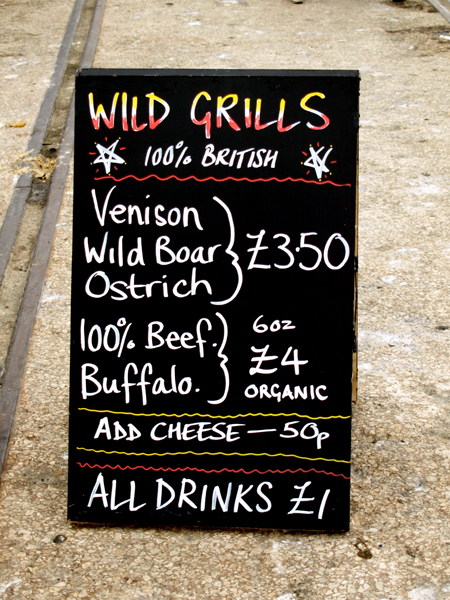 WILD GRILLS
100% BRITISH
Venison
Wild Boar
Ostrich
£3.50
100% Beef.
Buffalo.
6oz
£4
ORGANIC
ADD CHEESE — 50p
ALL DRINKS £1